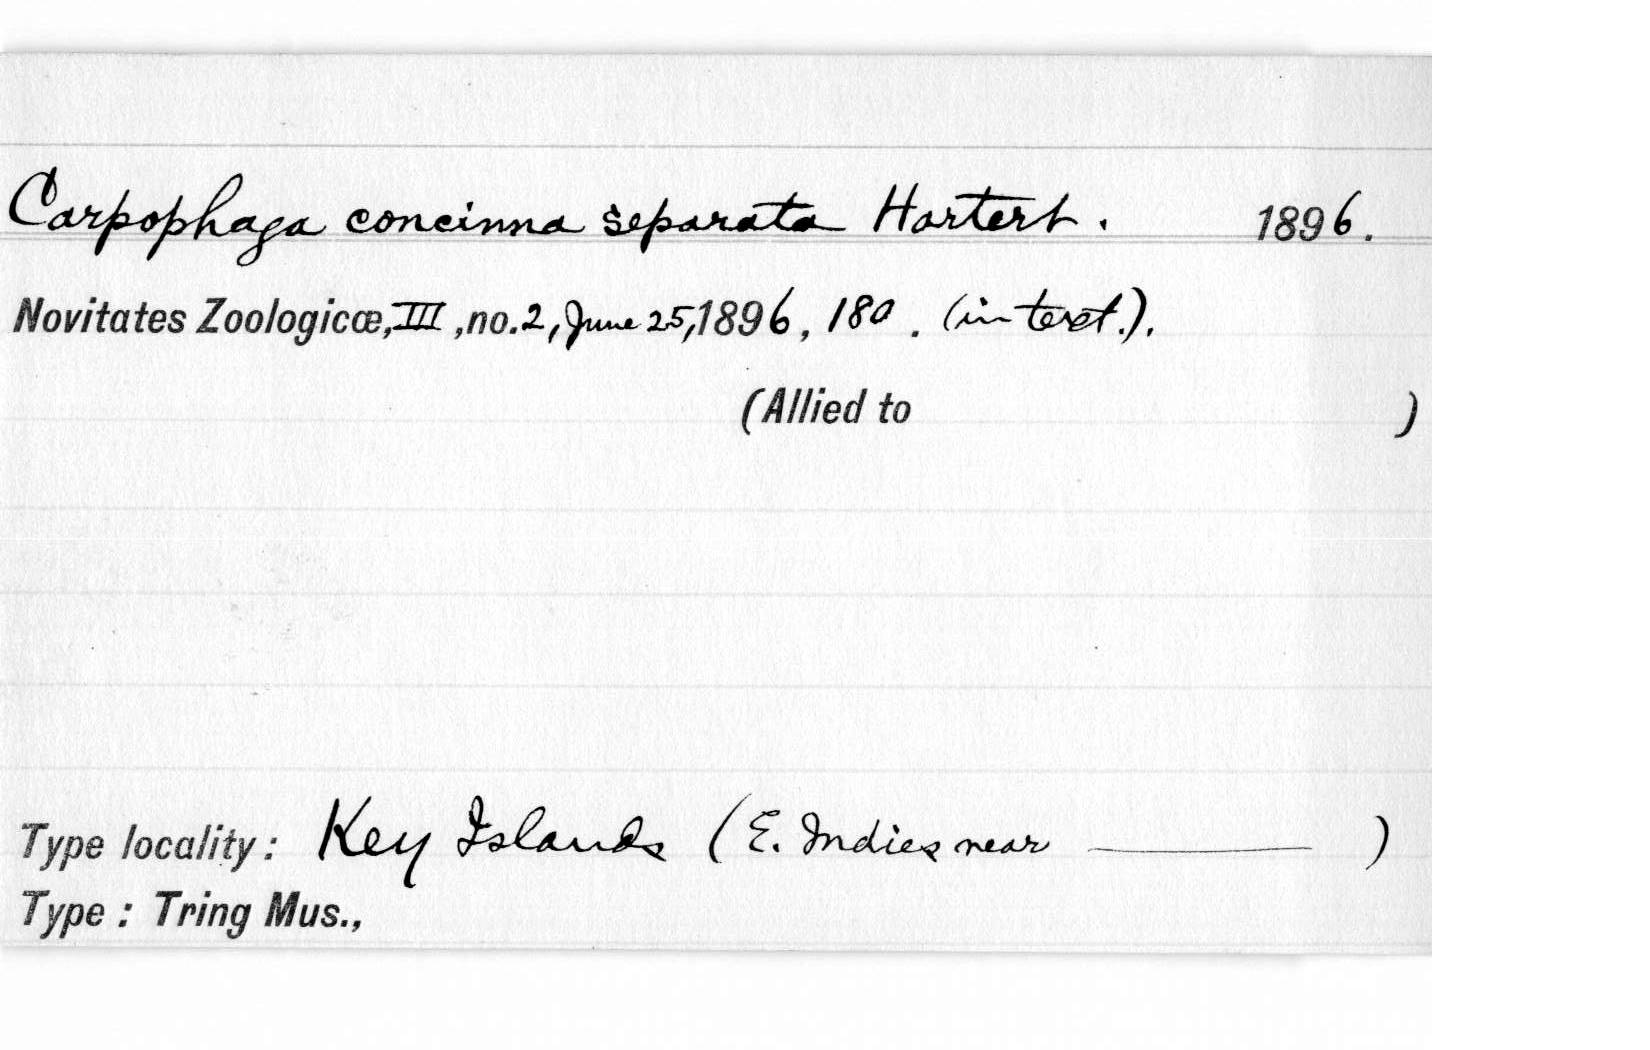 Carpophaga concinna separata Hartert. 1896.
Novitates Zoologicæ, III, no. 2, June 25, 1896, 180. (in text.).
(Allied to )
Type locality: Key Islands (E. Indies near ——— )
Type: Tring Mus.,